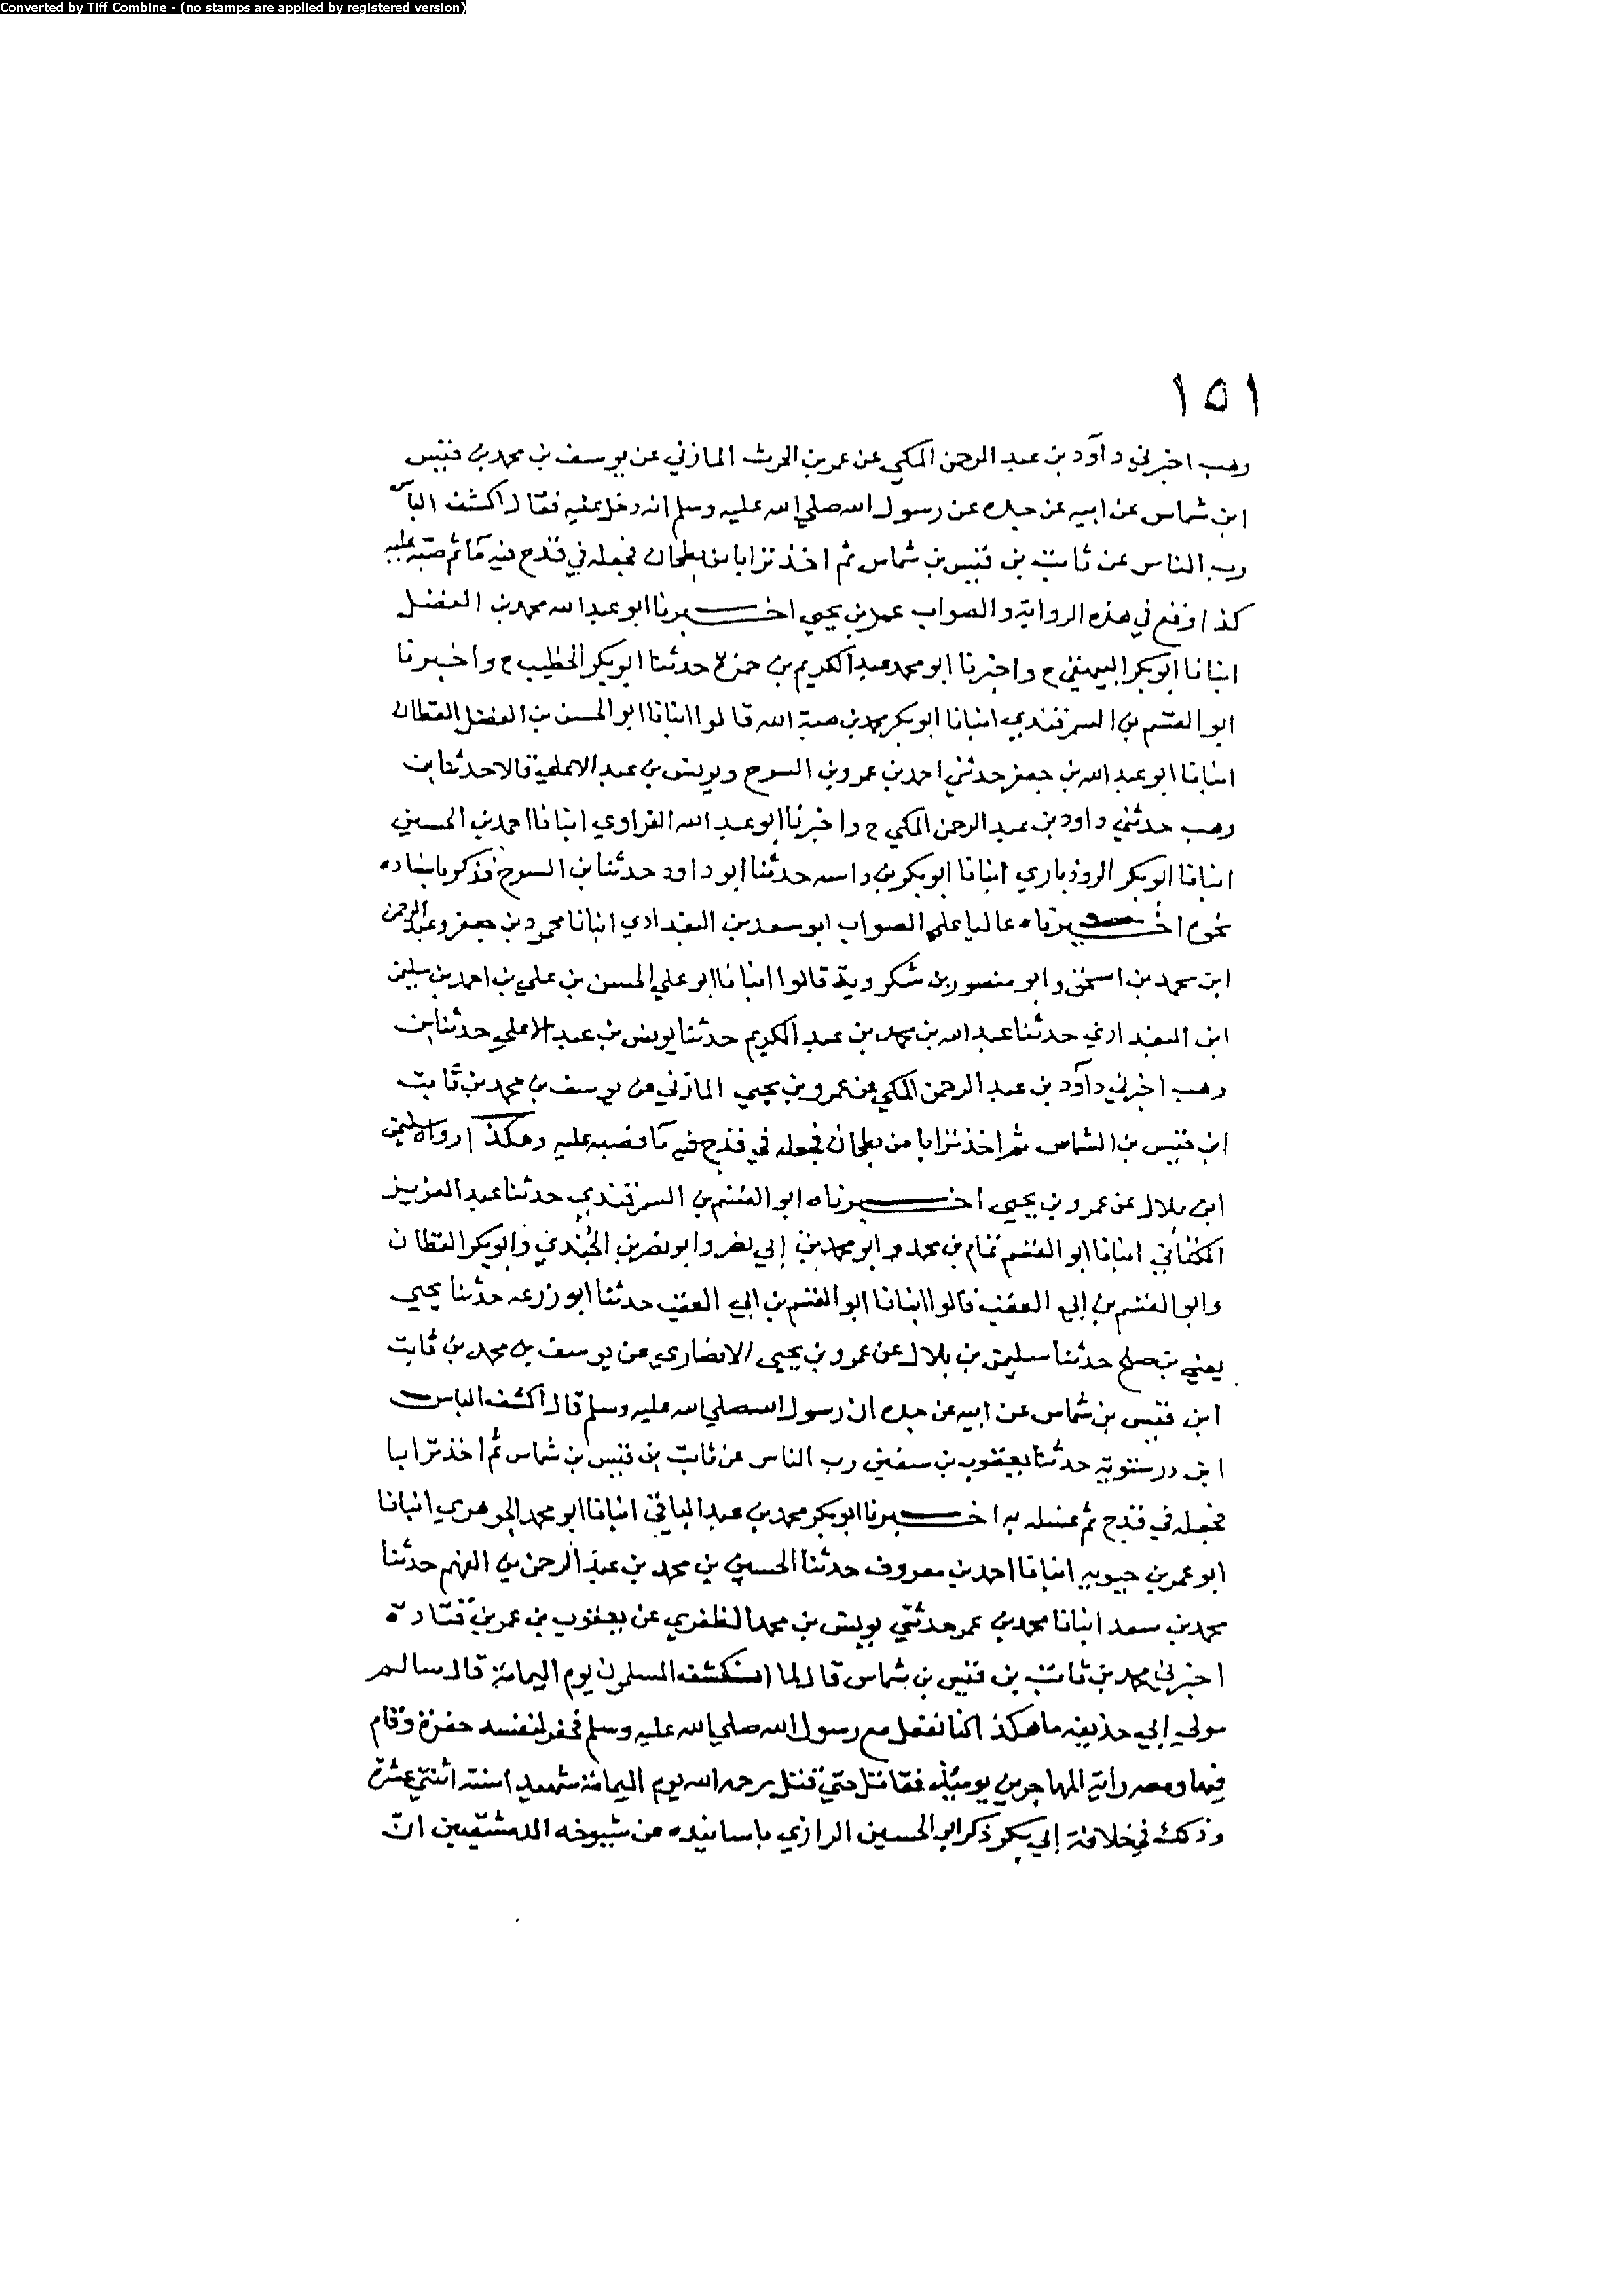 Converted by Tiff Combine - (no stamps are applied by registered version)
١٥١
وهب اخبرني داود بن عبد الرحمن المكي عن عمر بن الحرث المازني عن يوسف بن محمد بن قيس
ابن شماس عن ابيه عن جده عن رسول الله صلي الله عليه وسلم انه دخل عليه فقال اكشف الباس
رب الناس عن ثابت بن قيس بن شماس ثم اخذ ترابا من بطحان فجعله في قدح فيه ماء ثم صبه عليه
كذا وقع في هذه الرواية والصواب عمرو بن يحيي اخبرنا ابو عبد الله محمد بن الفضل
انبانا ابو بكر البيهقي ح واخبرنا ابو محمد عبد الكريم بن حمزة حدثنا ابو بكر الخطيب ح واخبرنا
ابو القسم بن السمرقندي انبانا ابو بكر محمد بن هبة الله قالوا انبانا ابو الحسن بن الفضل القطان
انبانا ابو عبد الله بن جعفر حدثني احمد بن عمرو بن السرح ويونس بن عبد الاعلي قالا حدثنا بن
وهب حدثني داود بن عبد الرحمن المكي ح واخبرنا ابو عبد الله الفراوي انبانا احمد بن الحسين
انبانا ابو بكر الروذباري انبانا ابو بكر بن داسه حدثنا ابو داود حدثنا بن السرح فذكر باسناده
نحوه اخبرناه عاليا علي الصواب ابو سعد بن البغدادي انبانا محمود بن جعفر وعبد الرحمن
ابن محمد بن اسحق وابو منصور بن شكرويه قالوا انبانا ابو علي الحسن بن علي بن احمد بن سليمن
ابن البغدادي حدثنا عبد الله بن محمد بن عبد الكريم حدثنا يونس بن عبد الاعلي حدثنا بن
وهب اخبرني داود بن عبد الرحمن المكي عن عمرو بن يحيي المازني عن يوسف بن محمد بن ثابت
ابن قيس بن الشماس ثم اخذ ترابا من بطحان فجعله في قدح فيه ماء فصبه عليه وهكذا رواه سليمن
ابن بلال عن عمرو بن يحيي اخبرناه ابو القسم بن السمرقندي حدثنا عبد العزيز
الكتاني انبانا ابو القسم تمام بن محمد وابو محمد بن ابي نصر وابو نصر بن الجندي وابو بكر القطان
وابو القسم بن ابي العقب قالوا انبانا ابو القسم بن ابي العقب حدثنا ابو زرعه حدثنا يحيي
يعني بن صلح حدثنا سليمن بن بلال عن عمرو بن يحيي الانصاري عن يوسف بن محمد بن ثابت
ابن قيس بن شماس عن ابيه عن جده ان رسول الله صلي الله عليه وسلم قال اكشف الباس
ابن درستويه حدثنا يعقوب بن سفين رب الناس عن ثابت بن قيس بن شماس ثم اخذ ترابا
فجعله في قدح ثم غسله به اخبرنا ابو بكر محمد بن عبد الباقي انبانا ابو محمد الجوهري انبانا
ابو عمر بن حيويه انبانا احمد بن معروف حدثنا الحسين بن محمد بن عبد الرحمن بن الفهم حدثنا
محمد بن سعد انبانا محمد بن عمر حدثني يونس بن محمد الظفري عن يعقوب بن عمر بن قتادة
اخبرني محمد بن ثابت بن قيس بن شماس قال لما انكشف المسلمون يوم اليمامة قال سالم
مولي ابي حذيفه ما هكذا كنا نفعل مع رسول الله صلي الله عليه وسلم فحفر لنفسه حفرة وقام
فيها ومعه راية المهاجرين يومئذ فقاتل حتي قتل رحمه الله يوم اليمامة شهيدا سنة اثنتي عشرة
وذلك في خلافة ابي بكر ذكر ابو الحسين الرازي باسانيده من شيوخه الدمشقيين ان